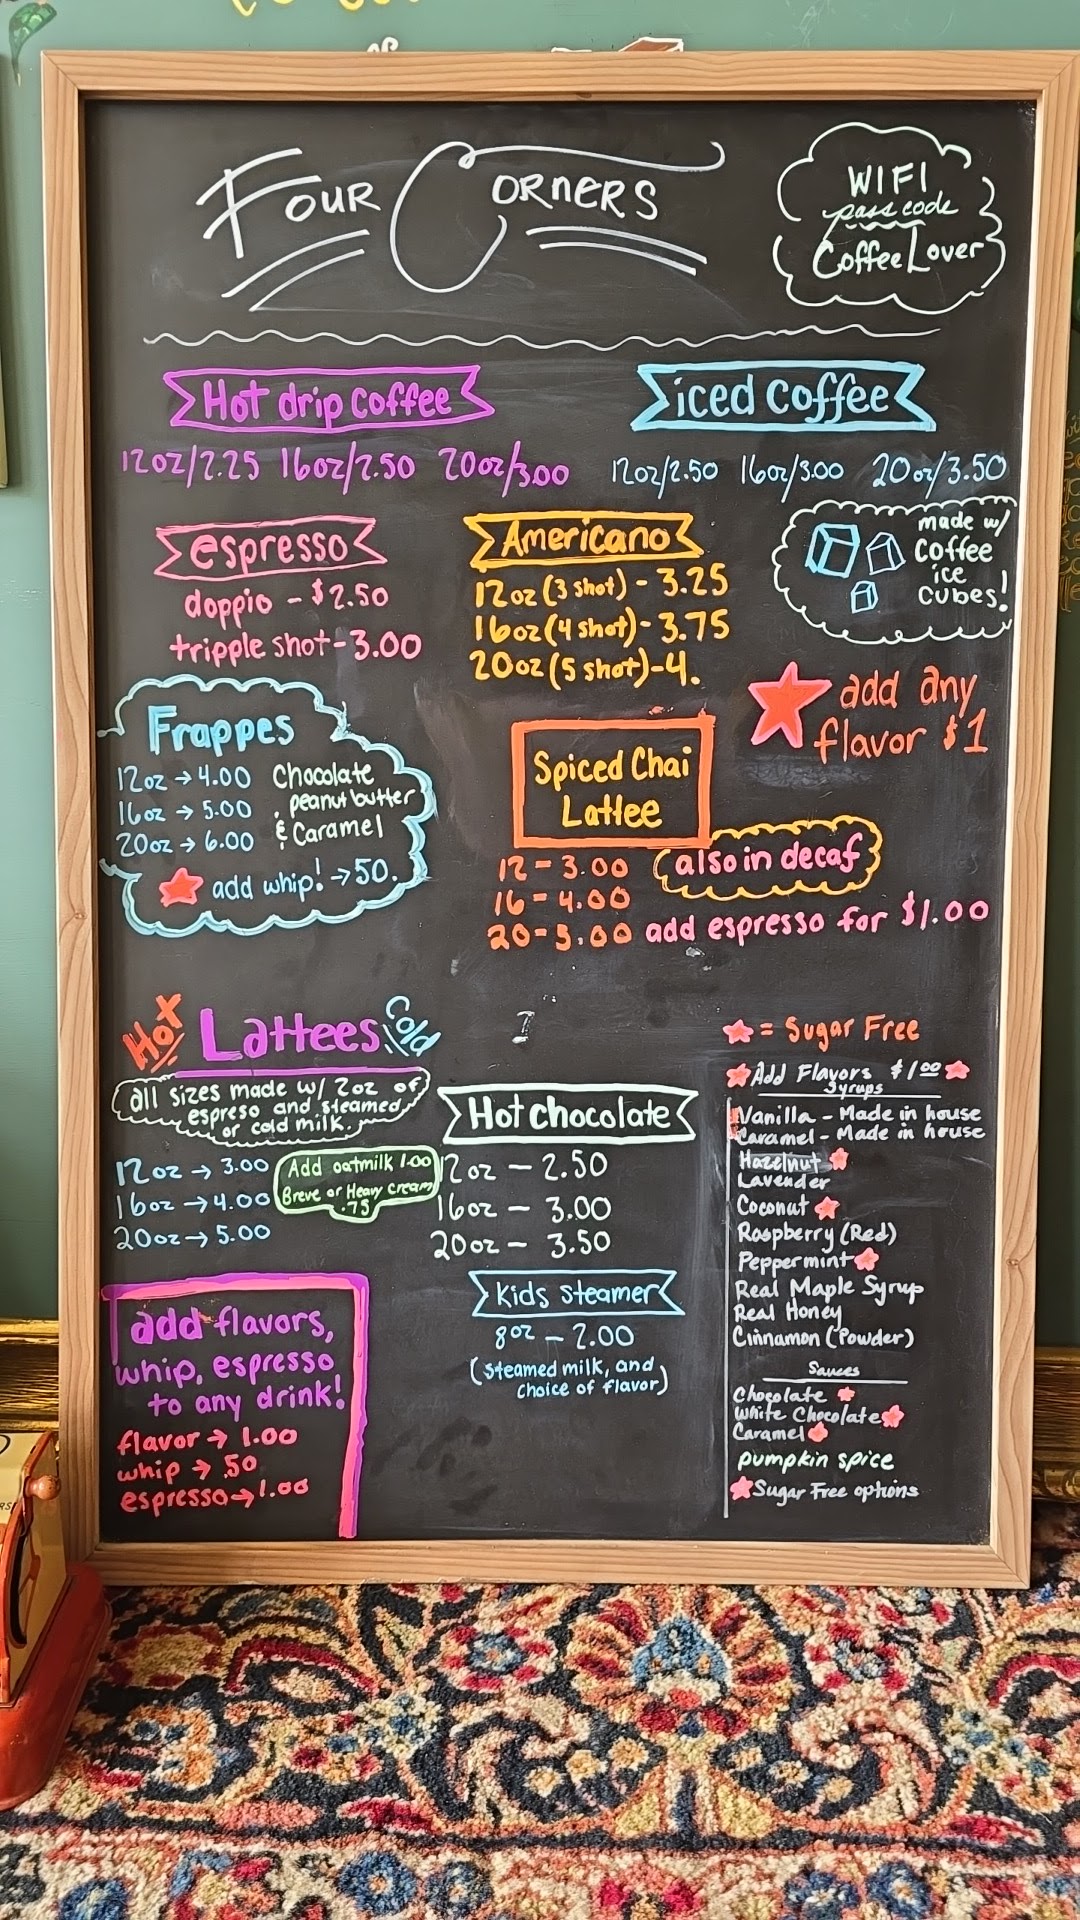 Four Corners
WIFI
pass code
CoffeeLover
Hot drip coffee
12oz/2.25 16oz/2.50 20oz/3.00
iced coffee
12oz/2.50 16oz/3.00 20oz/3.50
made w/
coffee
ice
cubes!
espresso
doppio - $2.50
tripple shot - 3.00
Americano
12oz (3 shot) - 3.25
16oz (4 shot) - 3.75
20oz (5 shot) - 4.
add any
flavor $1
Frappes
12oz → 4.00
16oz → 5.00
20oz → 6.00
Chocolate
, peanut butter
& Caramel
add whip! → 50.
Spiced Chai
Lattee
12 = 3.00
16 = 4.00
20 = 5.00
also in decaf
add espresso for $1.00
Hot Lattees Cold
all sizes made w/ 2oz of
espreso and steamed
or cold milk.
12oz → 3.00
16oz → 4.00
20oz → 5.00
Add oatmilk 1.00
Breve or Heavy Cream
.75
Hot chocolate
12oz - 2.50
16oz - 3.00
20oz - 3.50
Kids steamer
8oz - 2.00
(steamed milk, and
choice of flavor)
add flavors,
whip, espresso
to any drink!
flavor → 1.00
whip → .50
espresso → 1.00
★ = Sugar Free
★ Add Flavors $1.00 ★
Syrups
Vanilla - Made in house
Caramel - Made in house
Hazelnut ★
Lavender
Coconut ★
Raspberry (Red)
Peppermint ★
Real Maple Syrup
Real Honey
Cinnamon (Powder)
Sauces
Chocolate ★
White Chocolate ★
Caramel ★
pumpkin spice
★ Sugar Free options